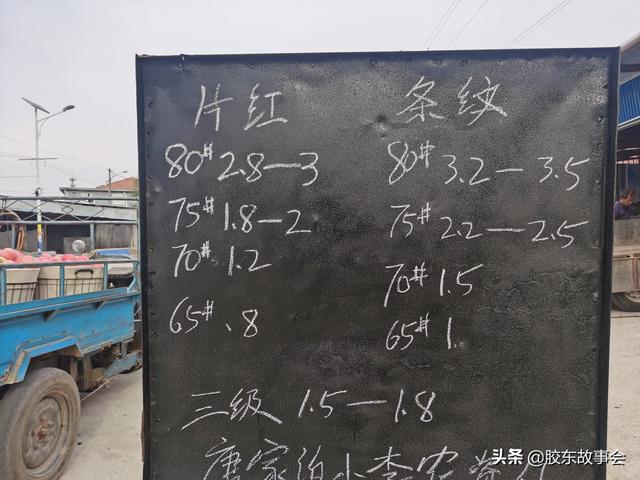 片红 条纹
80# 2.8—3 80# 3.2—3.5
75# 1.8—2 75# 2.2—2.5
70# 1.2 70# 1.5
65# .8 65# 1.
三级 1.5—1.8
唐家泊小李农
头条 @胶东故事会